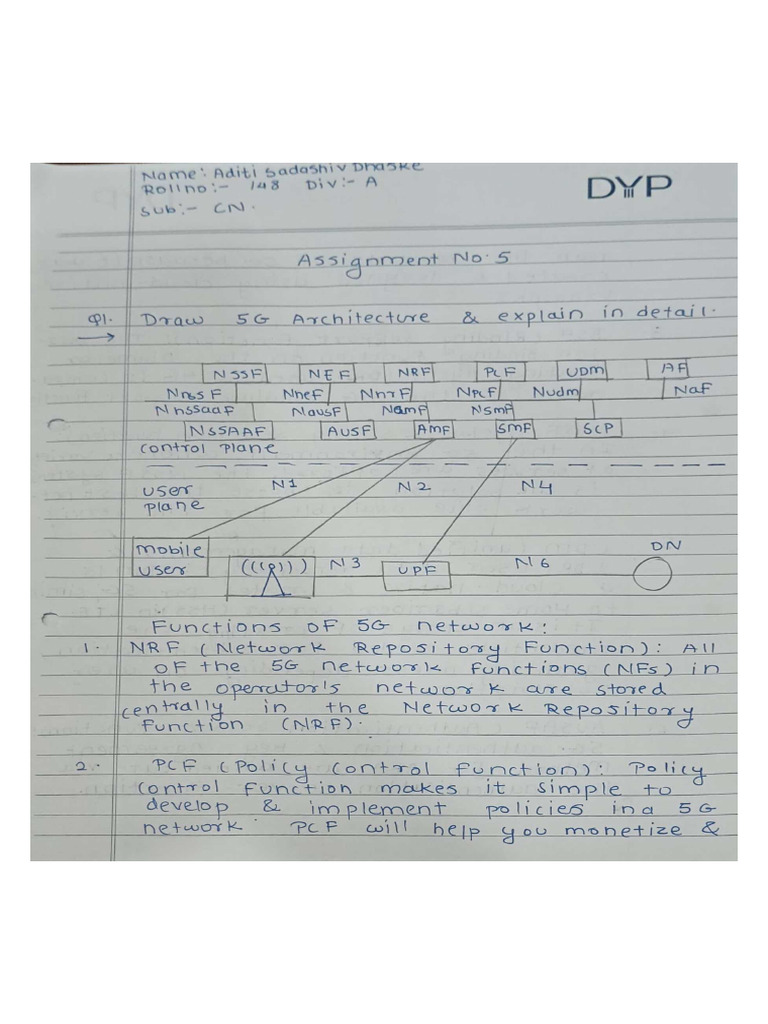 Name: Aditi Sadashiv Dhaske
Rollno:- 148 Div:- A
DYP
Sub:- CN.
Assignment No. 5
Q1. Draw 5G Architecture & explain in detail.
NSSF NEF NRF PCF UDM AF
Nnssf Nnef Nnrf Npcf Nudm Naf
Nnssaaf Nausf Namf Nsmf
NSSAAF AUSF AMF SMF SCP
Control plane
User plane N1 N2 N4
mobile user (((φ))) N3 UPF N6 DN
Functions of 5G network:
1. NRF (Network Repository Function): All
of the 5G network functions (NFs) in
the operator's network are stored
centrally in the Network Repository
Function (NRF).
2. PCF (Policy Control Function): Policy
Control Function makes it simple to
develop & implement policies in a 5G
network. PCF will help you monetize &